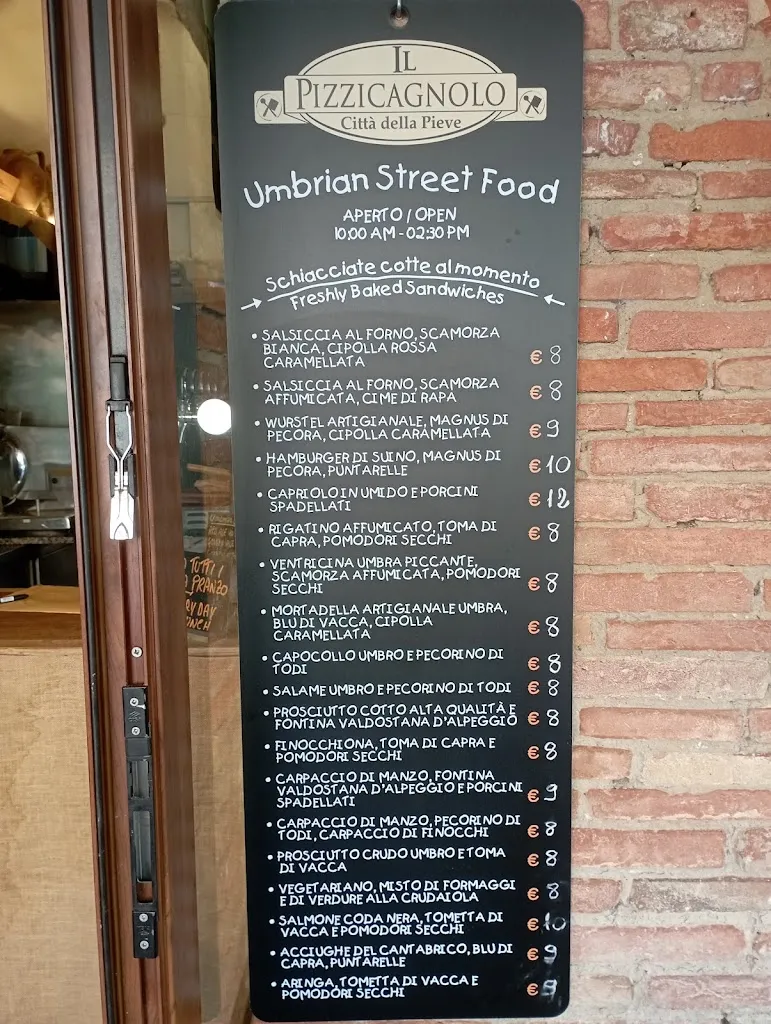 IL
PIZZICAGNOLO
Città della Pieve
Umbrian Street Food
APERTO / OPEN
10:00 AM - 02:30 PM
Schiacciate cotte al momento
Freshly Baked Sandwiches
• SALSICCIA AL FORNO, SCAMORZA
BIANCA, CIPOLLA ROSSA
CARAMELLATA € 8
• SALSICCIA AL FORNO, SCAMORZA
AFFUMICATA, CIME DI RAPA € 8
• WURSTEL ARTIGIANALE, MAGNUS DI
PECORA, CIPOLLA CARAMELLATA € 9
• HAMBURGER DI SUINO, MAGNUS DI
PECORA, PUNTARELLE € 10
• CAPRIOLO IN UMIDO E PORCINI
SPADELLATI € 12
• RIGATINO AFFUMICATO, TOMA DI
CAPRA, POMODORI SECCHI € 8
• VENTRICINA UMBRA PICCANTE,
SCAMORZA AFFUMICATA, POMODORI
SECCHI € 8
• MORTADELLA ARTIGIANALE UMBRA,
BLU DI VACCA, CIPOLLA
CARAMELLATA € 8
• CAPOCOLLO UMBRO E PECORINO DI
TODI € 8
• SALAME UMBRO E PECORINO DI TODI € 8
• PROSCIUTTO COTTO ALTA QUALITÀ E
FONTINA VALDOSTANA D'ALPEGGIO € 8
• FINOCCHIONA, TOMA DI CAPRA E
POMODORI SECCHI € 8
• CARPACCIO DI MANZO, FONTINA
VALDOSTANA D'ALPEGGIO E PORCINI
SPADELLATI € 9
• CARPACCIO DI MANZO, PECORINO DI
TODI, CARPACCIO DI FINOCCHI € 8
• PROSCIUTTO CRUDO UMBRO E TOMA
DI VACCA € 8
• VEGETARIANO, MISTO DI FORMAGGI
E DI VERDURE ALLA CRUDAIOLA € 8
• SALMONE CODA NERA, TOMETTA DI
VACCA E POMODORI SECCHI € 10
• ACCIUGHE DEL CANTABRICO, BLU DI
CAPRA, PUNTARELLE € 9
• ARINGA, TOMETTA DI VACCA E
POMODORI SECCHI € 9
TUTTI I
PRANZO
DAY